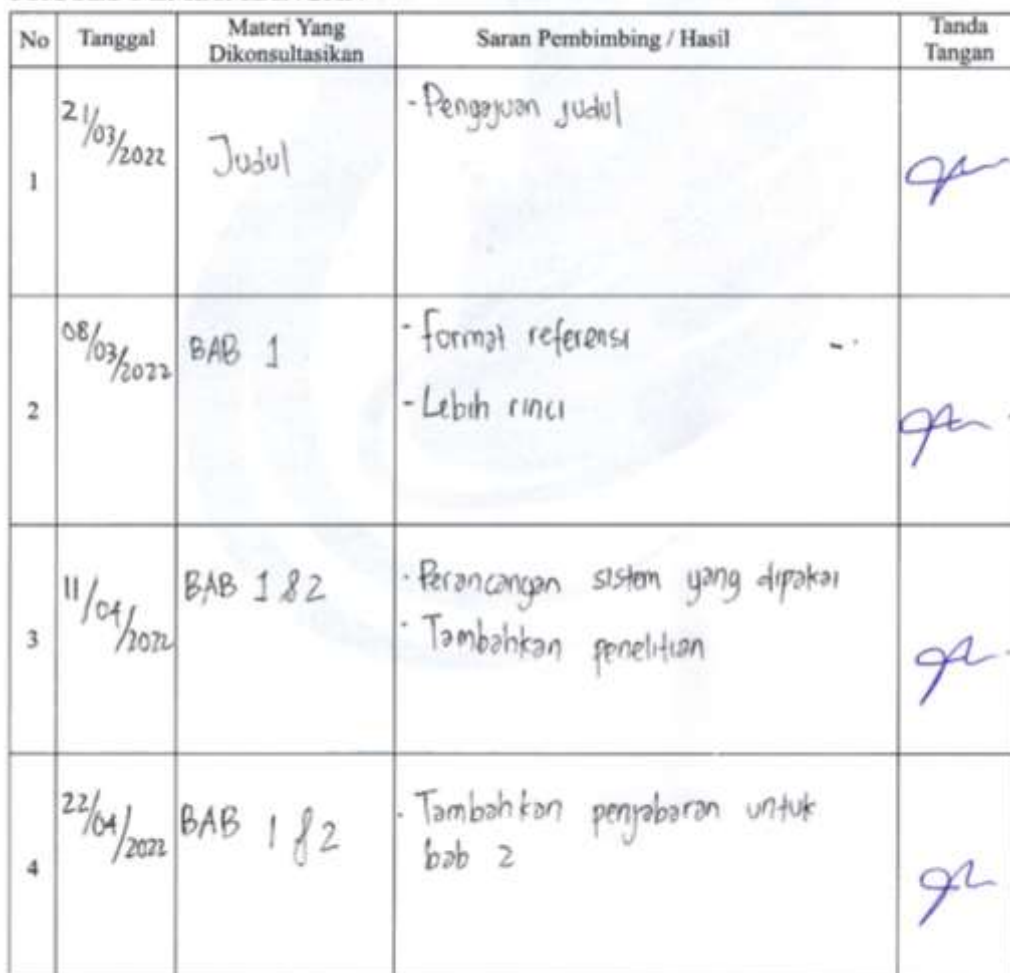 No Tanggal Materi Yang Dikonsultasikan Saran Pembimbing / Hasil Tanda Tangan
1 21/03/2022 Judul - Pengajuan judul
2 08/03/2022 BAB 1 - format referensi
- Lebih rinci
3 11/04/2022 BAB 1 & 2 - Perancangan sistem yang dipakai
- Tambahkan penelitian
4 22/04/2022 BAB 1 & 2 - Tambahkan penjabaran untuk
bab 2